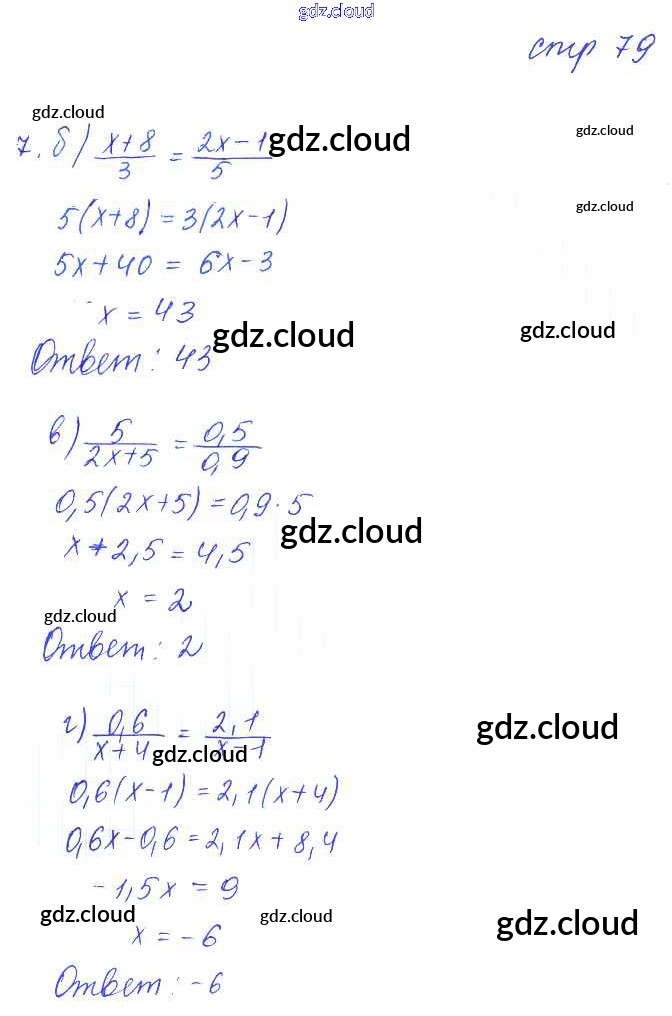 gdz.cloud
стр 79
gdz.cloud
7. б) x+8/3 = 2x-1/5 gdz.cloud gdz.cloud
5(x+8) = 3(2x-1) gdz.cloud
5x+40 = 6x-3
x = 43
Ответ: 43 gdz.cloud gdz.cloud
в) 5/2x+5 = 0,5/0,9
0,5(2x+5) = 0,9·5
gdz.cloud
x+2,5 = 4,5
x = 2
gdz.cloud
Ответ: 2
г) 0,6/x+4 = 2,1/x-1 gdz.cloud
gdz.cloud
0,6(x-1) = 2,1(x+4)
0,6x-0,6 = 2,1x+8,4
-1,5x = 9
gdz.cloud gdz.cloud gdz.cloud
x = -6
Ответ: -6